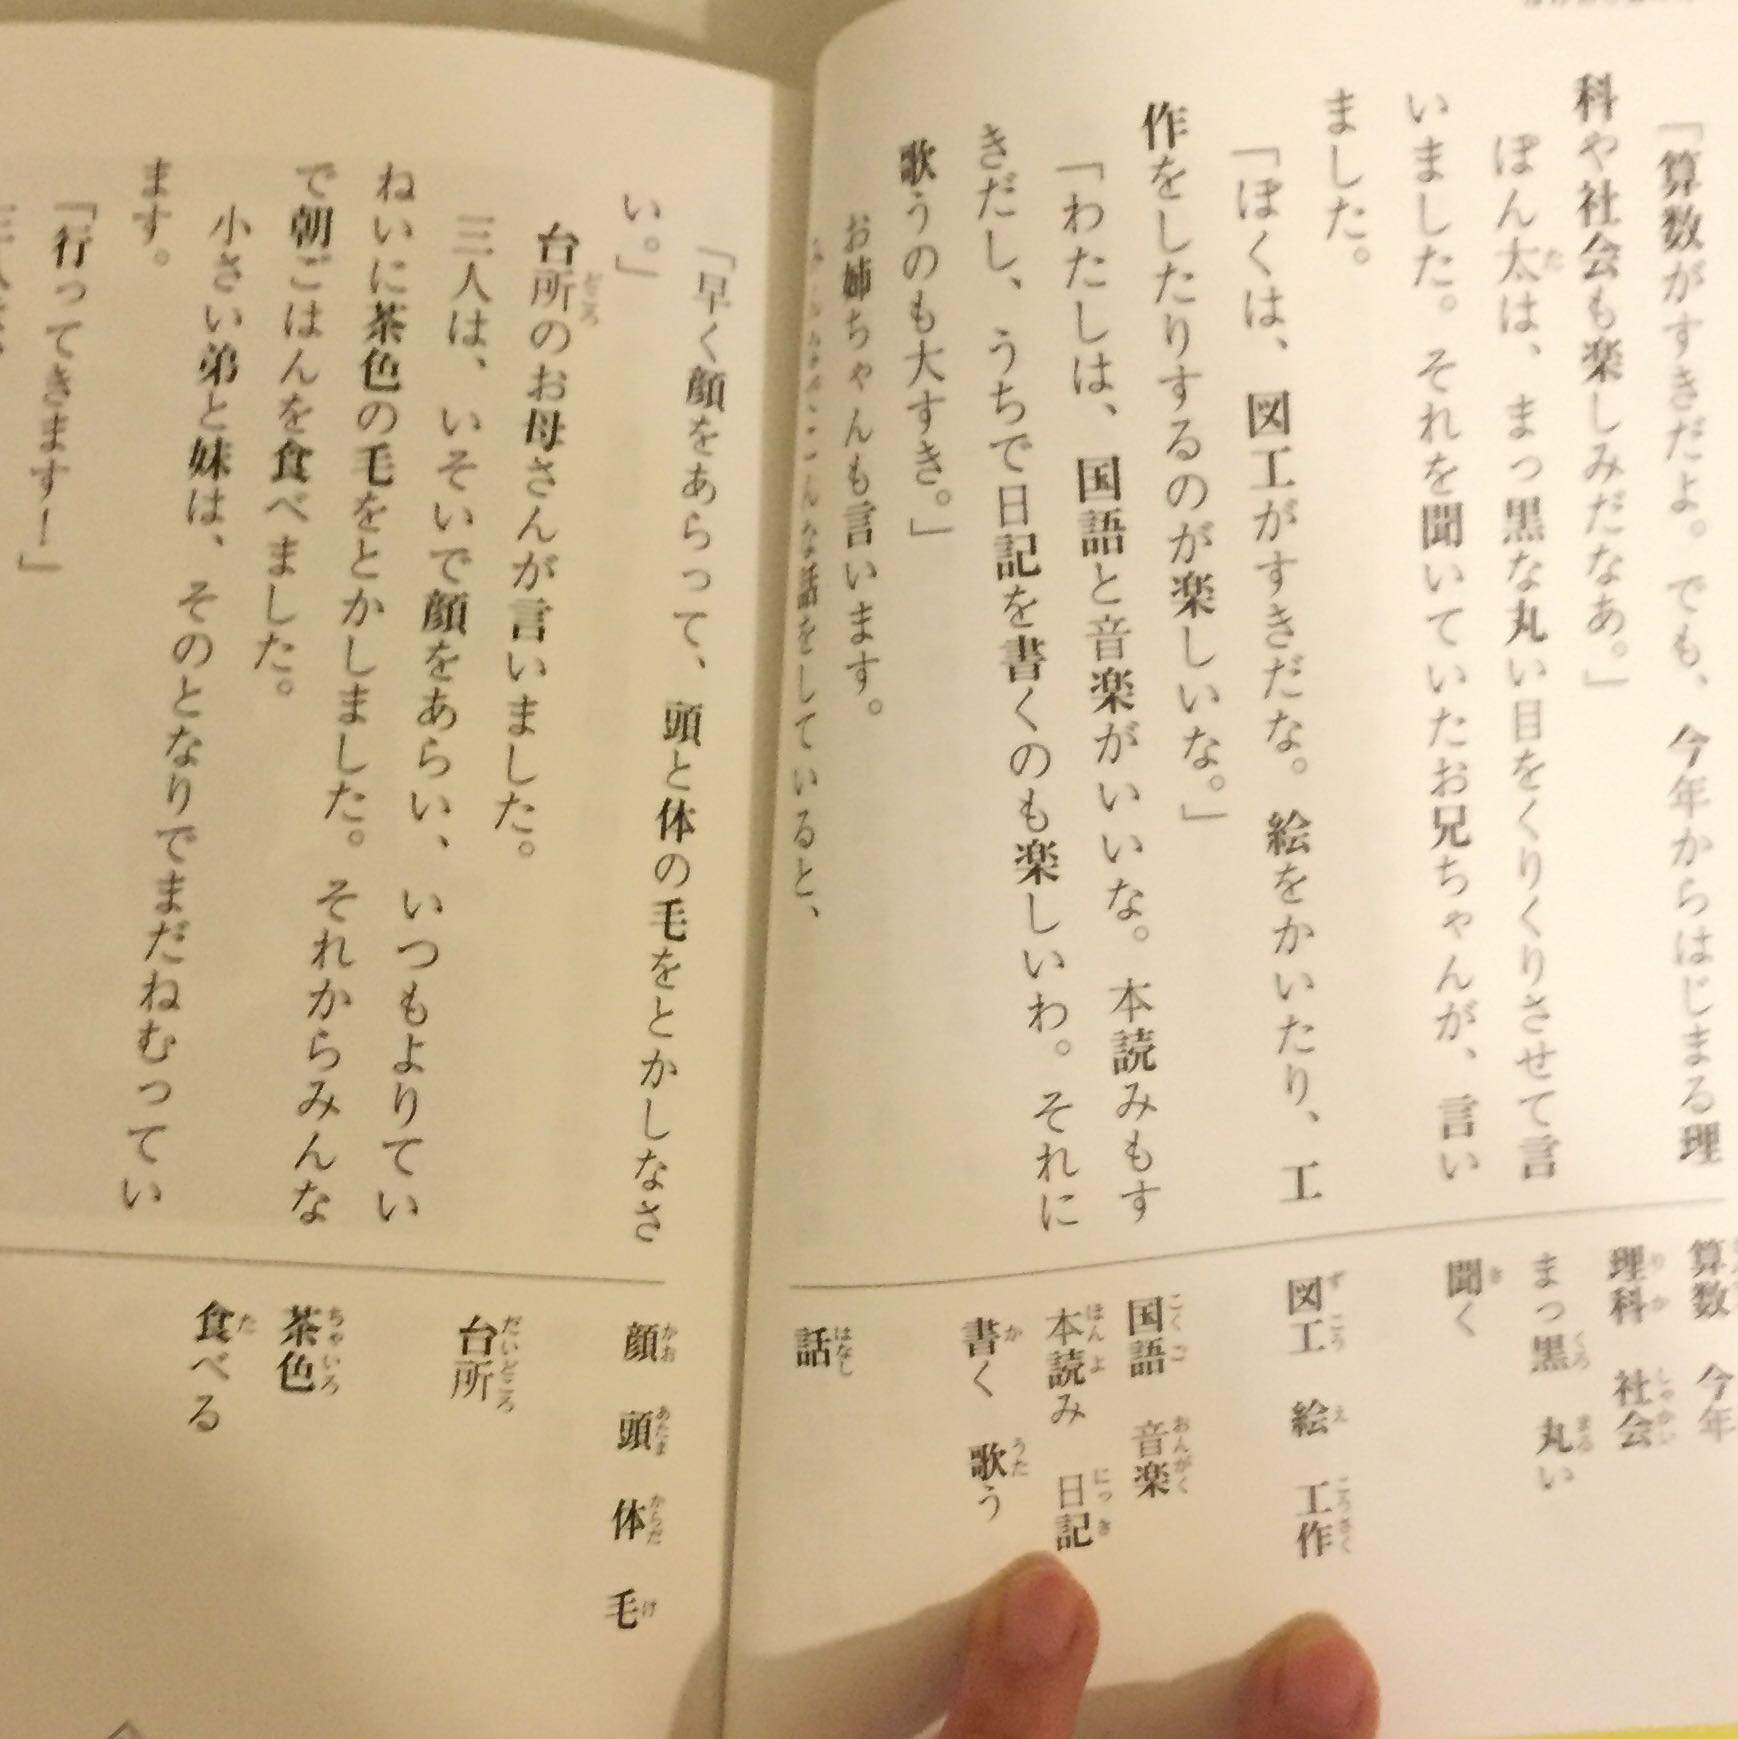 「算数がすきだよ。でも、今年からはじまる理
科や社会も楽しみだなあ。」
ぽん太は、まっ黒な丸い目をくりくりさせて言
いました。それを聞いていたお兄ちゃんが、言い
ました。
「ぼくは、図工がすきだな。絵をかいたり、工
作をしたりするのが楽しいな。」
「わたしは、国語と音楽がいいな。本読みもす
きだし、うちで日記を書くのも楽しいわ。それに
歌うのも大すき。」
お姉ちゃんも言います。
話をしていると、
算数 今年
理科 社会
まっ黒 丸い
聞く
図工 絵 工作
国語 音楽
本読み 日記
書く 歌う
話
「早く顔をあらって、頭と体の毛をとかしなさ
い。」
台所のお母さんが言いました。
三人は、いそいで顔をあらい、いつもよりてい
ねいに茶色の毛をとかしました。それからみんな
で朝ごはんを食べました。
小さい弟と妹は、そのとなりでまだねむってい
ます。
「行ってきますー」
顔 頭 体 毛
台所
茶色
食べる